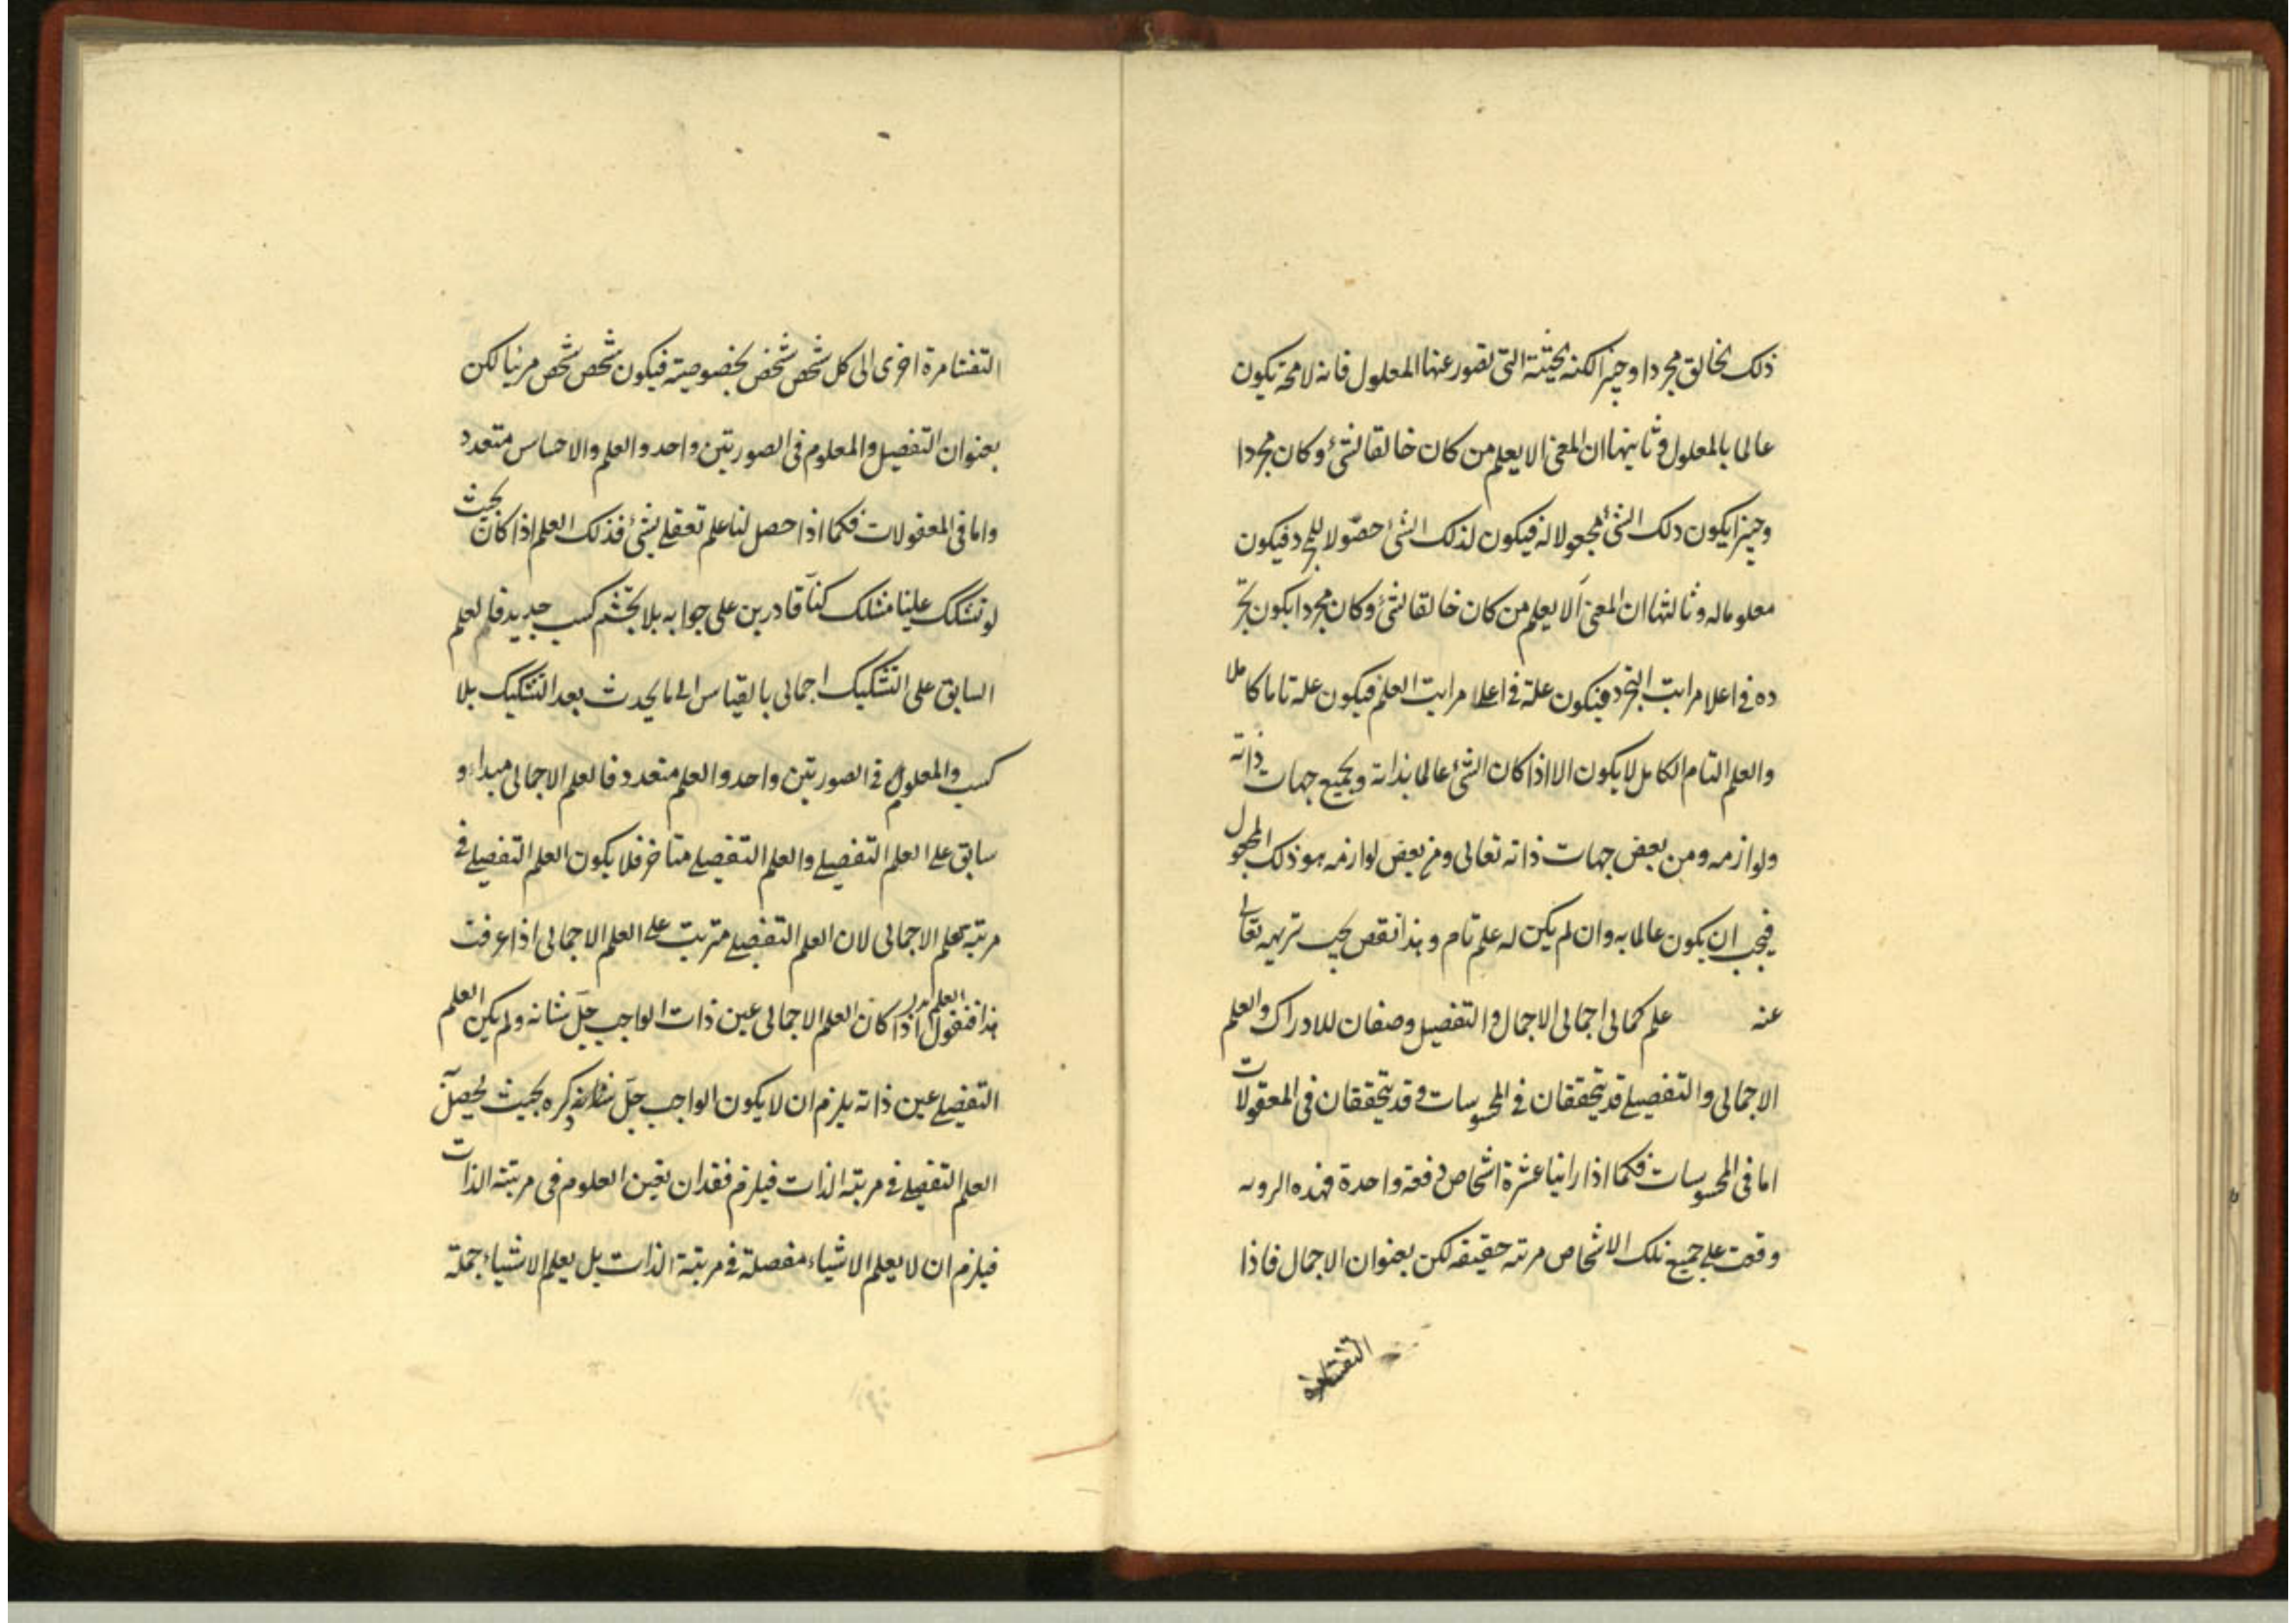 ذلك الخالق مجردا وحينز الكنه بحيثية التى تصور عنها المعلول فانه لا محة يكون
عالما بالمعلول وثانيها ان المعنى الا يعلم من كان خالقا لشئ وكان مجردا
وحينز ايكون ذلك الشئ المجعولا له فيكون لذلك الشئ حصولا للمجرد فيكون
معلوما له وثالثها ان المعنى الا يعلم من كان خالقا لشئ وكان مجردا يكون تجر
ده فى اعلا مراتب التجرد فيكون علمه فى اعلا مراتب العلم فيكون علمه تاما كاملا
والعلم التام الكامل لا يكون الا اذا كان الشئ عالما بذاته وبجميع جهات ذاته
ولوازمه ومن بعض جهات ذاته تعالى ومن بعض لوازمه هو ذلك المجعول
فيجب ان يكون عالما به وان لم يكن له علم تام وهذا نقص يجب تنزيهه تعالى
عنه علم كمالى اجمالى الاجمال والتفصيل وصفان للادراك والعلم
الاجمالى والتفصيلے قد يتحققان فى المحسوسات وقد يتحققان فى المعقولات
اما فى المحسوسات فكما اذا راينا عشرة اشخاص دفعة واحدة فهذه الرويه
وقعت على جميع تلك الاشخاص مرته حقيقه لكن بعنوان الاجمال فاذا
التفتنا مرة
التفتنا مرة اخرى الى كل شخص شخص بخصوصيته فيكون شخص شخص مرئيا لكن
بعنوان التفصيل والمعلوم فى الصورتين واحد والعلم والاحساس متعدد
واما فى المعقولات فكما اذا حصل لنا علم تعقلے بشئ فذلك العلم اذا كان بحيث
لو تشكك علينا متشكك كنا قادرين على جوابه بلا تجشم كسب جديد فالعلم
السابق على التشكيك اجمالى بالقياس الى ما يحدث بعد التشكيك بلا
كسب والمعلوم فى الصورتين واحد والعلم متعدد فالعلم الاجمالى مبداء و
سابق على العلم التفصيلے والعلم التفصيلے متاخر فلا يكون العلم التفصيلے فى
مرتبة العلم الاجمالى لان العلم التفصيلے مترتب على العلم الاجمالى اذا عرفت
هذا فنقول اذا كان العلم الاجمالى عين ذات الواجب جل شانه ولم يكن العلم
التفصيلے عين ذاته يلزم ان لا يكون الواجب جل ذكره بحيث يحصل
العلم التفصيلے فى مرتبة الذات فيلزم فقدان تعين العلوم فى مرتبته الذات
فيلزم ان لا يعلم الاشياء مفصلة فى مرتبة الذات بل يعلم الاشياء جملة